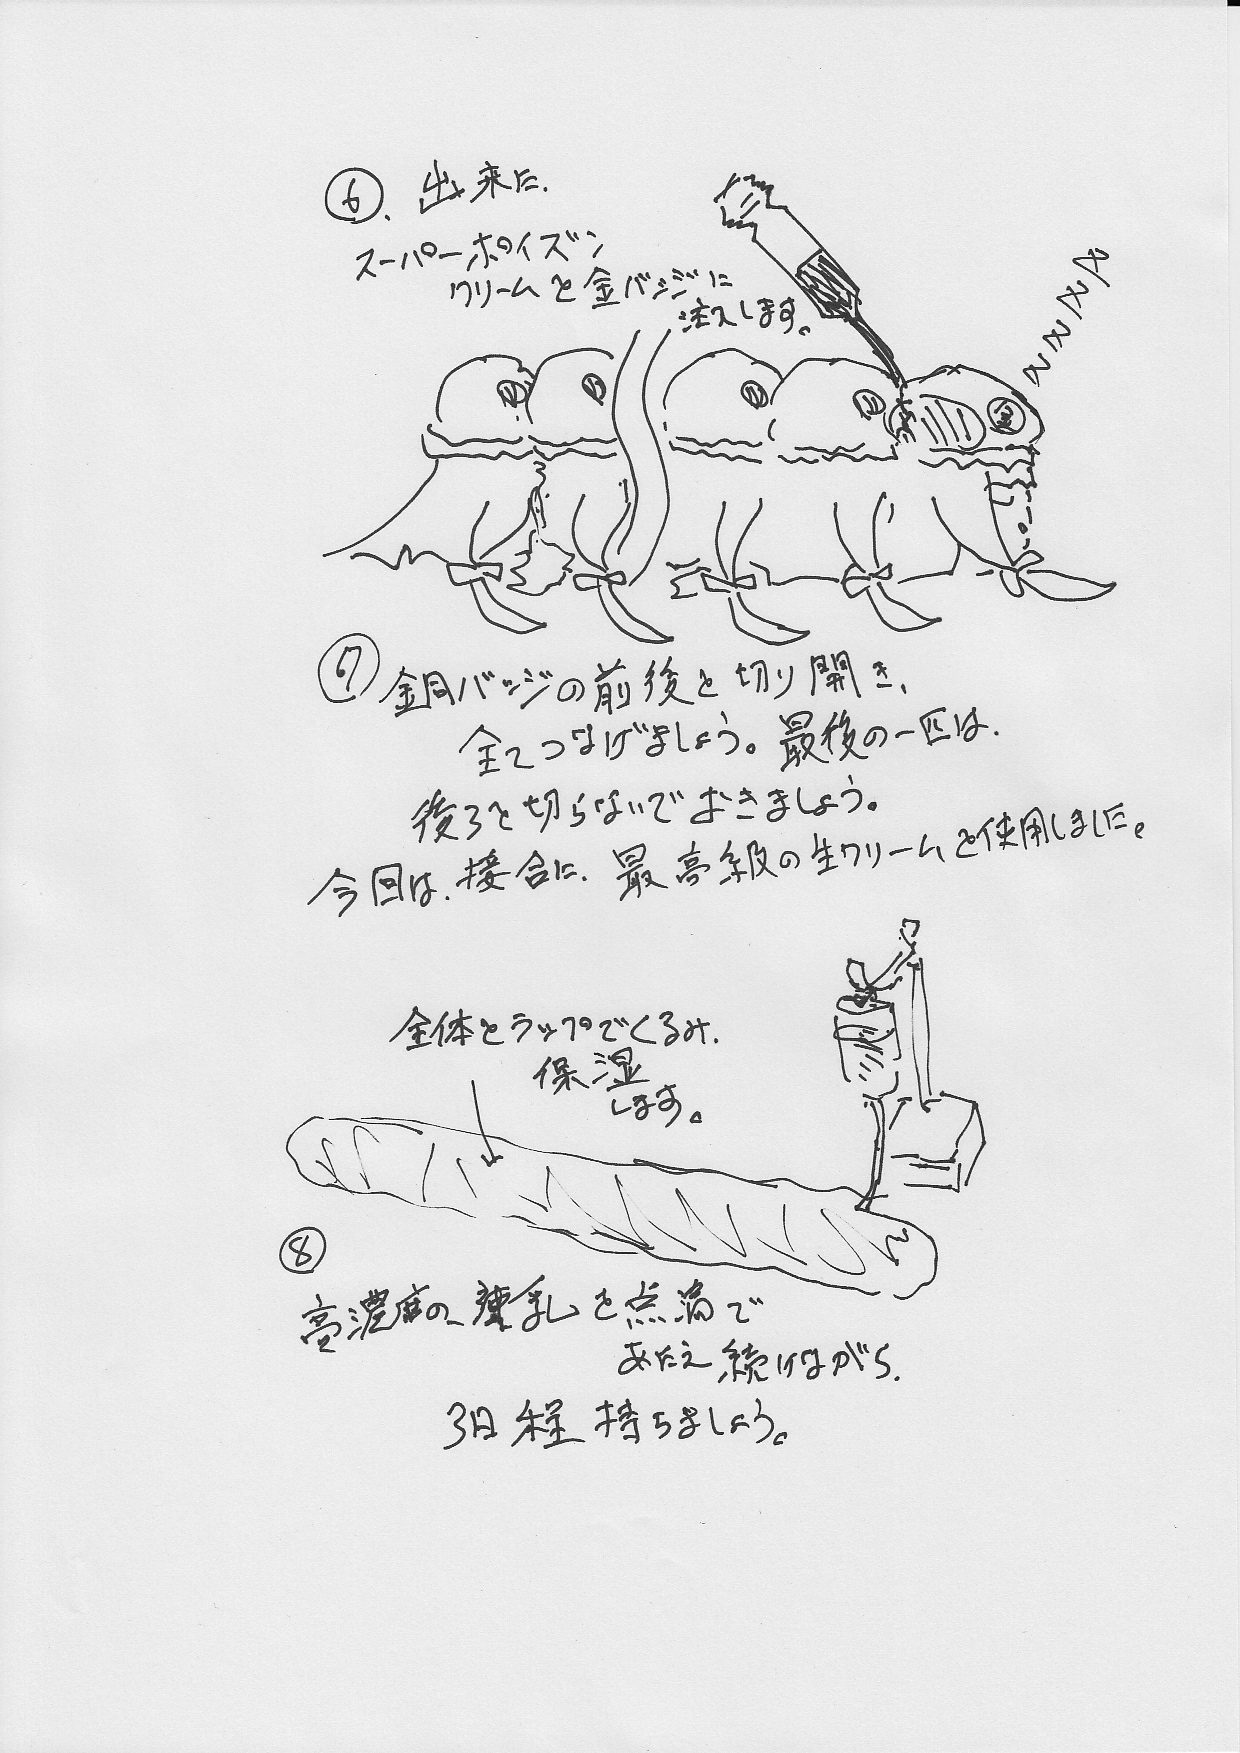 ⑥、出来た、
スーパーポイズン
クリームを金バッジに
注入します。
zzzz
⑦ 銅バッジの前後を切り開き、
全てつなげましょう。最後の一匹は、
後ろを切らないでおきましょう。
今回は、接合に、最高級の生クリームを使用しました。
全体をラップでくるみ、
保湿
します。
⑧
高濃度の、練乳を点滴で
あたえ続けながら、
3日程持ちましょう。